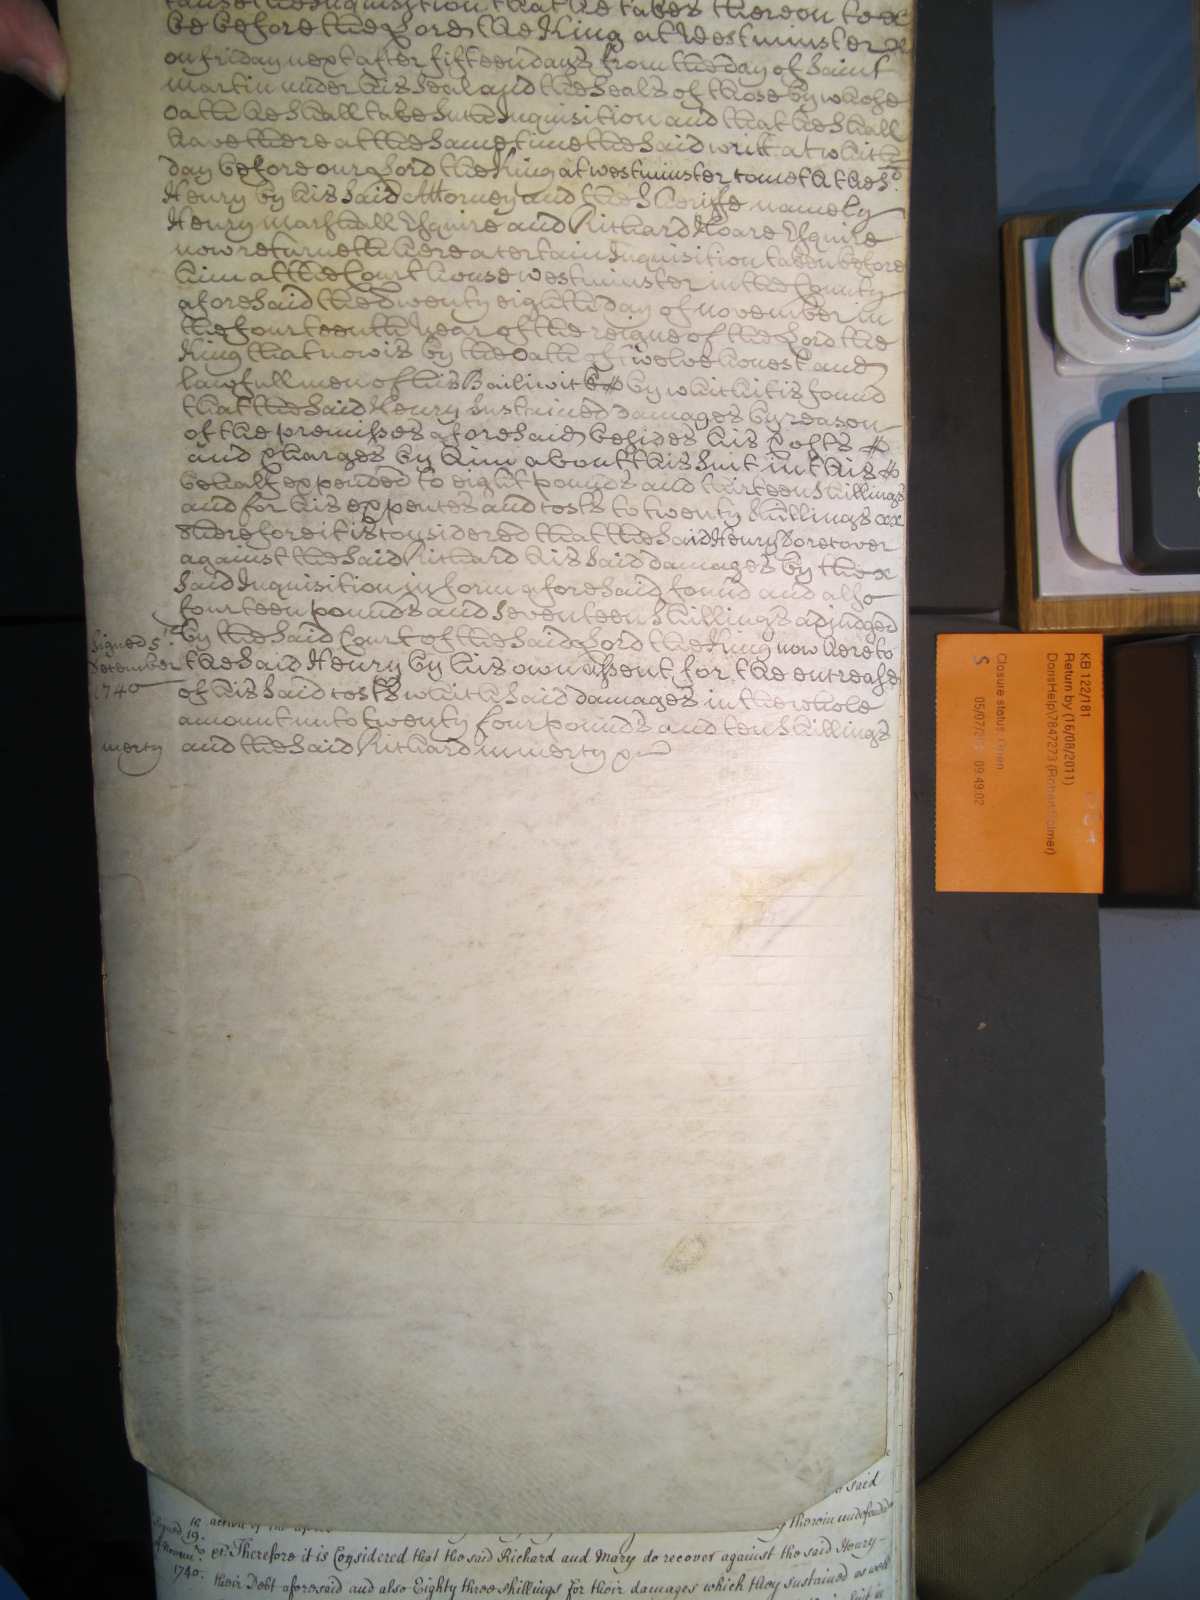 cause the Inquisition that he takes thereon to x
be before the Lord the King at Westminster x
on friday next after fifteen days from the day of Saint
Martin under his Seal and the Seals of those by whose
oath he shall take such Inquisition and that he shall
have there at the same time the said writt at which
day before our Lord the King at westminster cometh the sd
Henry by his said Attorney and the Sheriffe namely
Henry Marshall Esquire and Richard Hoare Esquire
now returneth here a certain Inquisition taken before
him at the Court house westminster in the County
aforesaid the twenty eighth day of november in
the fourteenth Year of the reigne of the Lord the
King that now is by the oath of twelve honest and
lawfull men of his Bailiwick by which it is found
that the said Henry sustained damages by reason
of the premisses aforesaid besides his Costs
and Charges by him about his suit in this
behalf expended to eight pounds and thirteen shillings
and for his expences and costs to twenty shillings xx
Therefore it is considered that the said Henry do recover
against the said Richard his said damages by the x
said Inquisition in form aforesaid found and also
fourteen pounds and seventeen shillings adjudged
by the said Court of the said Lord the King now here to
Signed 5th
December
1740
the said Henry by his own assent for the encrease
of his said costs which said damages in the whole
amount unto twenty four pounds and ten shillings
mercy and the said Richard in mercy &c
KB 122/181
Return by (16/08/2011)
DorisHelp\7847273 (Robert Palmer)
Closure status Open
S 05/07/20 09:49:02
said
action of the
therein undefended
Signed 19.
of Novemr.
1740.
&c. Therefore it is Considered that the said Richard and Mary do recover against the said Henry
their Debt aforesaid and also Eighty three shillings for their damages which they sustained as well
suit in